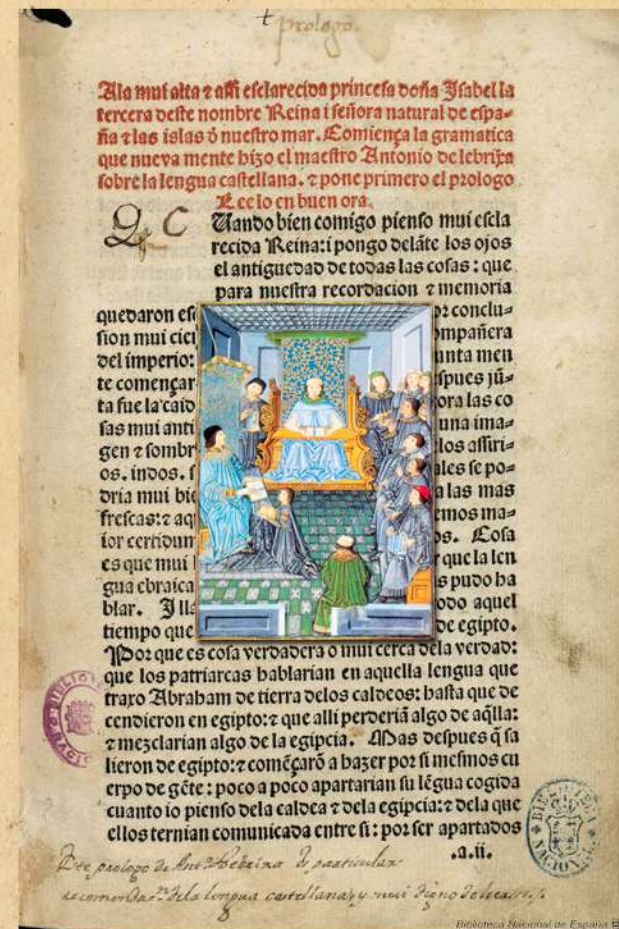 prologo.
A la mui alta ⁊ assi esclarecida princesa doña Isabel la
tercera deste nombre Reina i señora natural de espa=
ña ⁊ las islas d̓ nuestro mar. Comiença la gramatica
que nueva mente hizo el maestro Antonio de lebrixa
sobre la lengua castellana. ⁊ pone primero el prologo
Lee lo en buen ora.
C
Uando bien comigo pienso mui escla
recida Reina: i pongo delãte los ojos
el antiguedad de todas las cosas: que
para nuestra recordacion ⁊ memoria
quedaron esc por conclu=
sion mui cier ompañera
del imperio: unta men
te començar spues jũ=
ta fue la caid ora las co
sas mui anti una ima=
gen ⁊ sombr los assiri=
os. indos. s ales se po=
dria mui bie a las mas
frescas: ⁊ aq emos ma=
ior certidum os. Cosa
es que mui r que la len
gua ebraica s pudo ha
blar. I lla odo aquel
tiempo que de egipto.
Por que es cosa verdadera o mui cerca dela verdad:
que los patriarcas hablarian en aquella lengua que
traxo Abraham de tierra delos caldeos: hasta que de
cendieron en egipto: ⁊ que alli perderiã algo de aq̃lla:
⁊ mezclarian algo de la egipcia. Mas despues q̃ sa
lieron de egipto: ⁊ comẽçarõ a hazer por si mesmos cu
erpo de gẽte: poco a poco apartarian su lẽgua cogida
cuanto io pienso dela caldea ⁊ dela egipcia: ⁊ dela que
ellos ternian comunicada entre si: por ser apartados
.a.ii.
Este prologo de Ant. de particular
dela lengua castellana, y mui digno de
Biblioteca Nacional de España